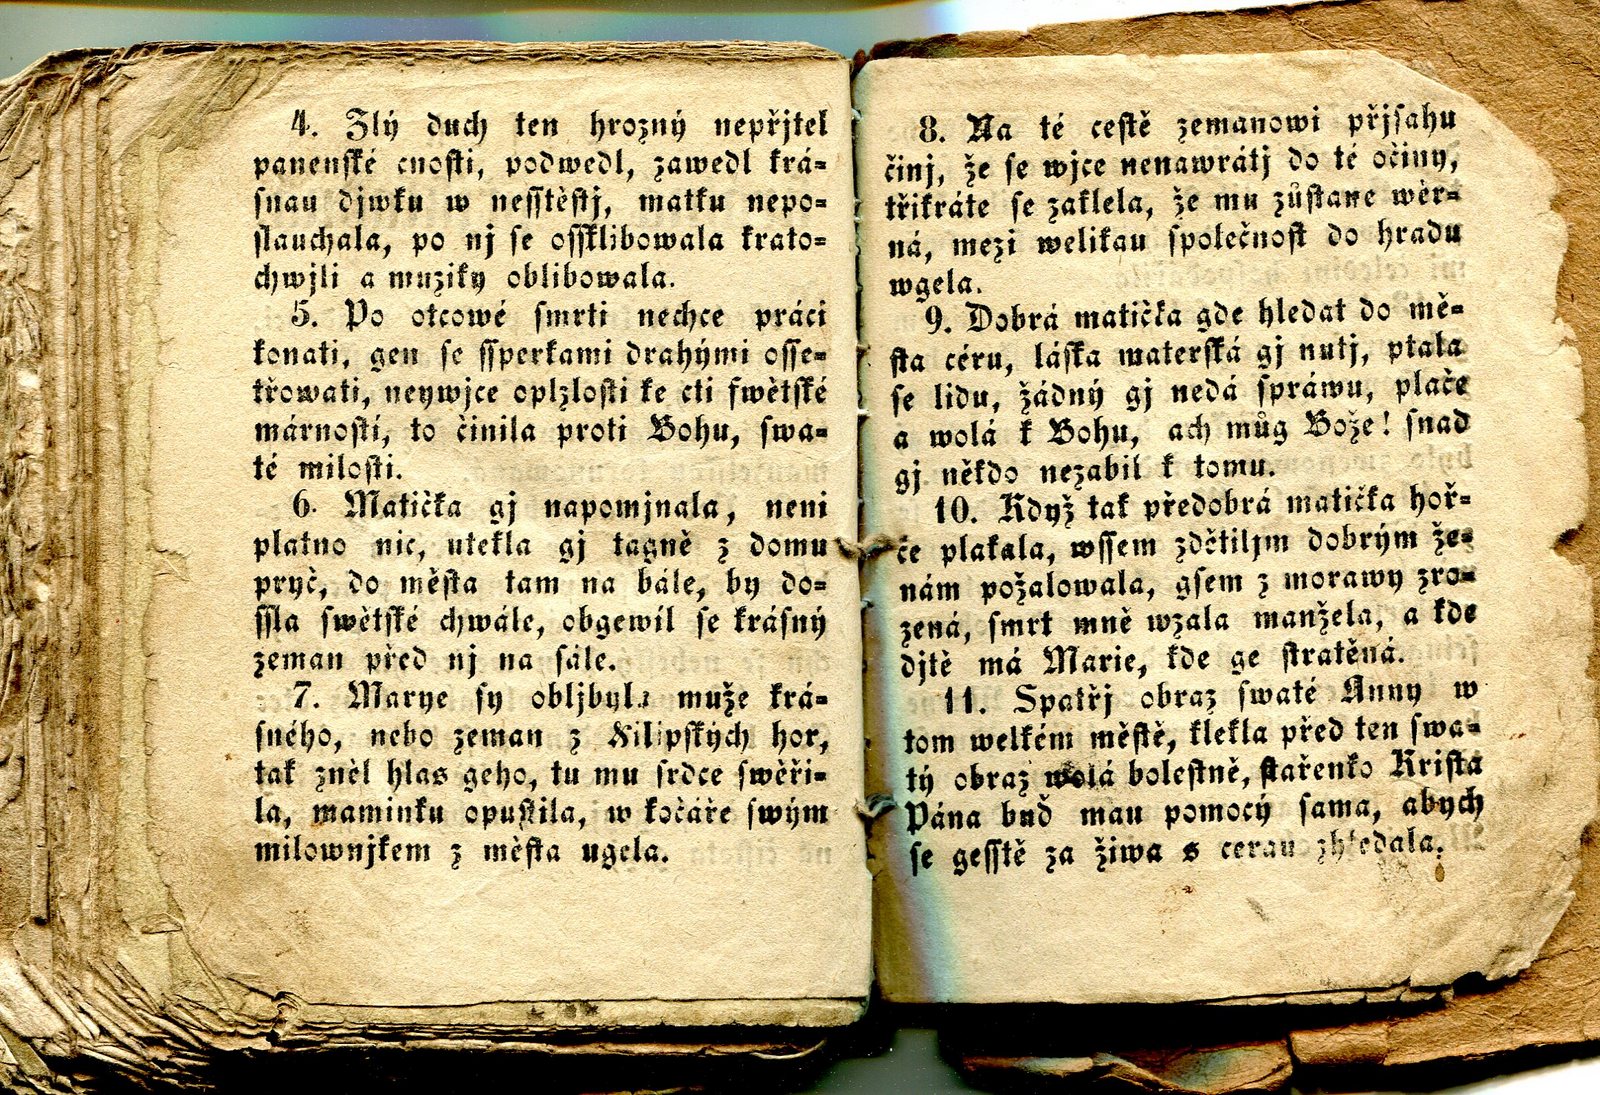 4. Zlý duch ten hrozný nepřjtel
panenské cnosti, podwedl, zawedl krá=
snau djwku w nesstěstj, matku nepo=
slauchala, po nj se ossklibowala krato=
chwjli a muziky oblibowala.
5. Po otcowé smrti nechce práci
konati, gen se ssperkami drahými osse=
třowati, neywjce oplzlosti ke cti swětské
márnosti, to činila proti Bohu, swa=
té milosti.
6. Matička gj napomjnala, neni
platno nic, utekla gj tagně z domu
pryč, do města tam na bále, by do=
ssla swětské chwále, obgewil se krásný
zeman před nj na sále.
7. Marye sy obljbyla muže krá=
sného, nebo zeman z Filipských hor,
tak zněl hlas geho, tu mu srdce swěři=
la, maminku opustila, w kočáře swým
milownjkem z města ugela.
8. Na té cestě zemanowi přjsahu
činj, že se wjce nenawrátj do té očiny,
třikráte se zaklela, že mu zůstane wěr=
ná, mezi welikau společnost do hradu
wgela.
9. Dobrá matička gde hledat do mě=
sta céru, láska materská gj nutj, ptala
se lidu, žádný gj nedá spráwu, plače
a wolá k Bohu, ach můg Bože! snad
gj někdo nezabil k tomu.
10. Když tak předobrá matička hoř=
če plakala, wssem zdčtiljm dobrým že=
nám požalowala, gsem z morawy zro=
zená, smrt mně wzala manžela, a kde
djtě má Marie, kde ge stratěná.
11. Spatřj obraz swaté Anny w
tom welkém městě, klekla před ten swa=
tý obraz wolá bolestně, stařenko Krista
Pána buď mau pomocý sama, abych
se gesstě za žiwa s cerau zhledala.